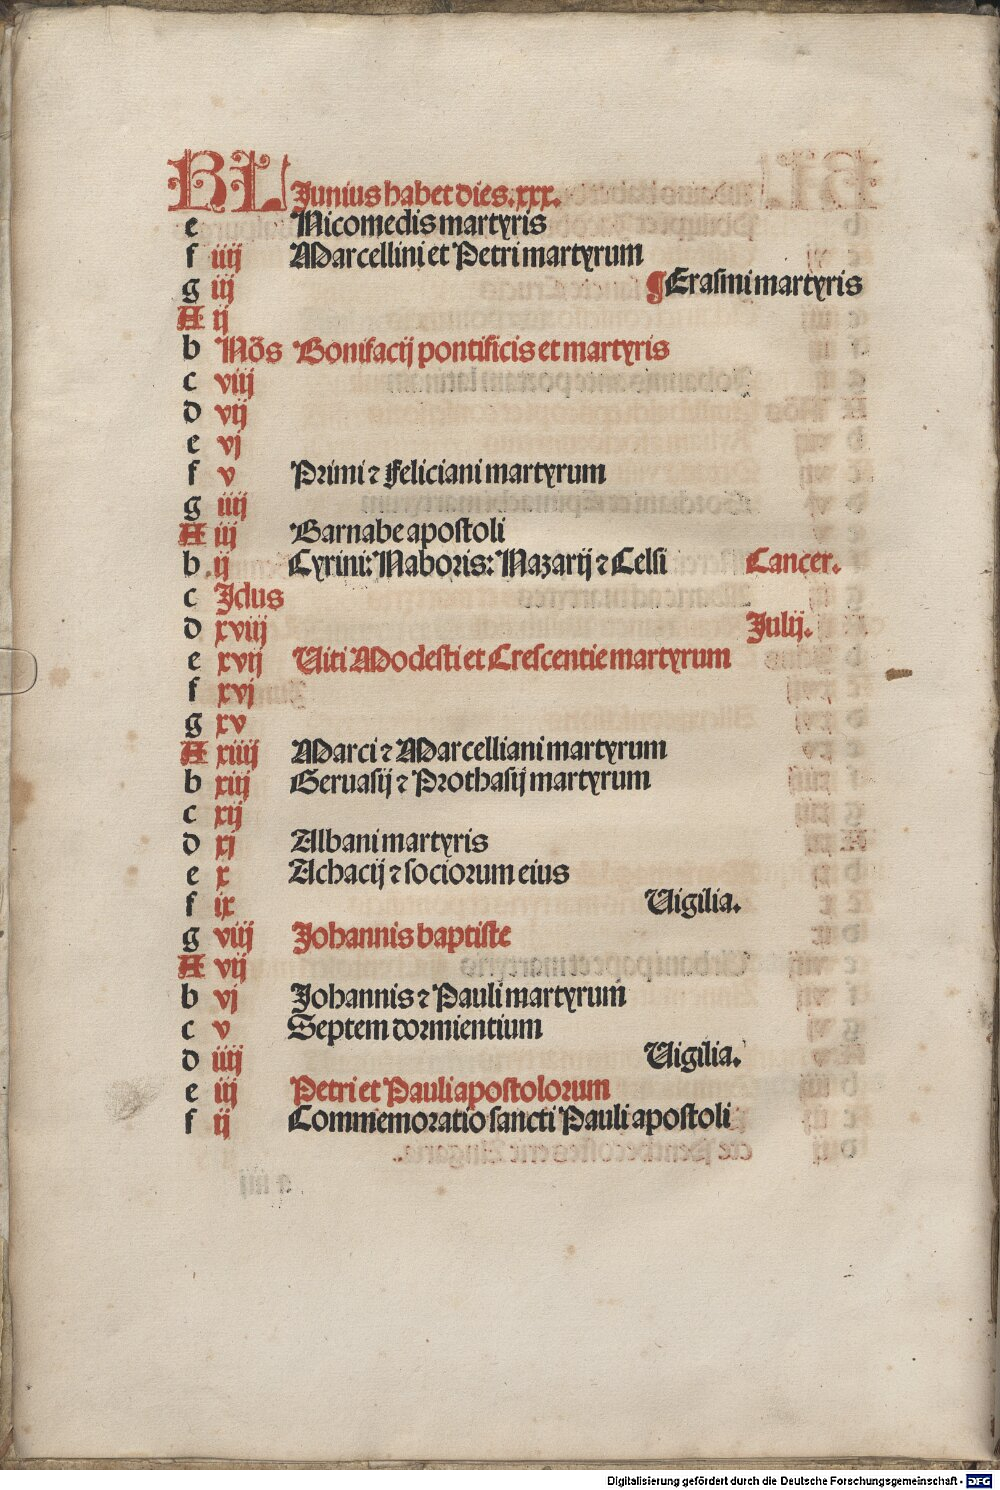 KL Junius habet dies.xxx.
e Nicomedis martyris
f iiij Marcellini et Petri martyrum
g iij ¶Erasmi martyris
A ij
b Nōs Bonifacij pontificis et martyris
c viij
d vij
e vj
f v Primi ⁊ Feliciani martyrum
g iiij
A iij Barnabe apostoli
b ij Cyrini: Naboris: Nazarij ⁊ Celsi Cancer.
c Jdus
d xviij Julij.
e xvij Uiti Modesti et Crescentie martyrum
f xvj
g xv
A xiiij Marci ⁊ Marcelliani martyrum
b xiij Geruasij ⁊ Prothasij martyrum
c xij
d xj Albani martyris
e x Achacij ⁊ sociorum eius
f ix Uigilia.
g viij Johannis baptiste
A vij
b vj Johannis ⁊ Pauli martyrum
c v Septem dormientium
d iiij Uigilia.
e iij Petri et Pauli apostolorum
f ij Commemoratio sancti Pauli apostoli
Digitalisierung gefördert durch die Deutsche Forschungsgemeinschaft - DFG